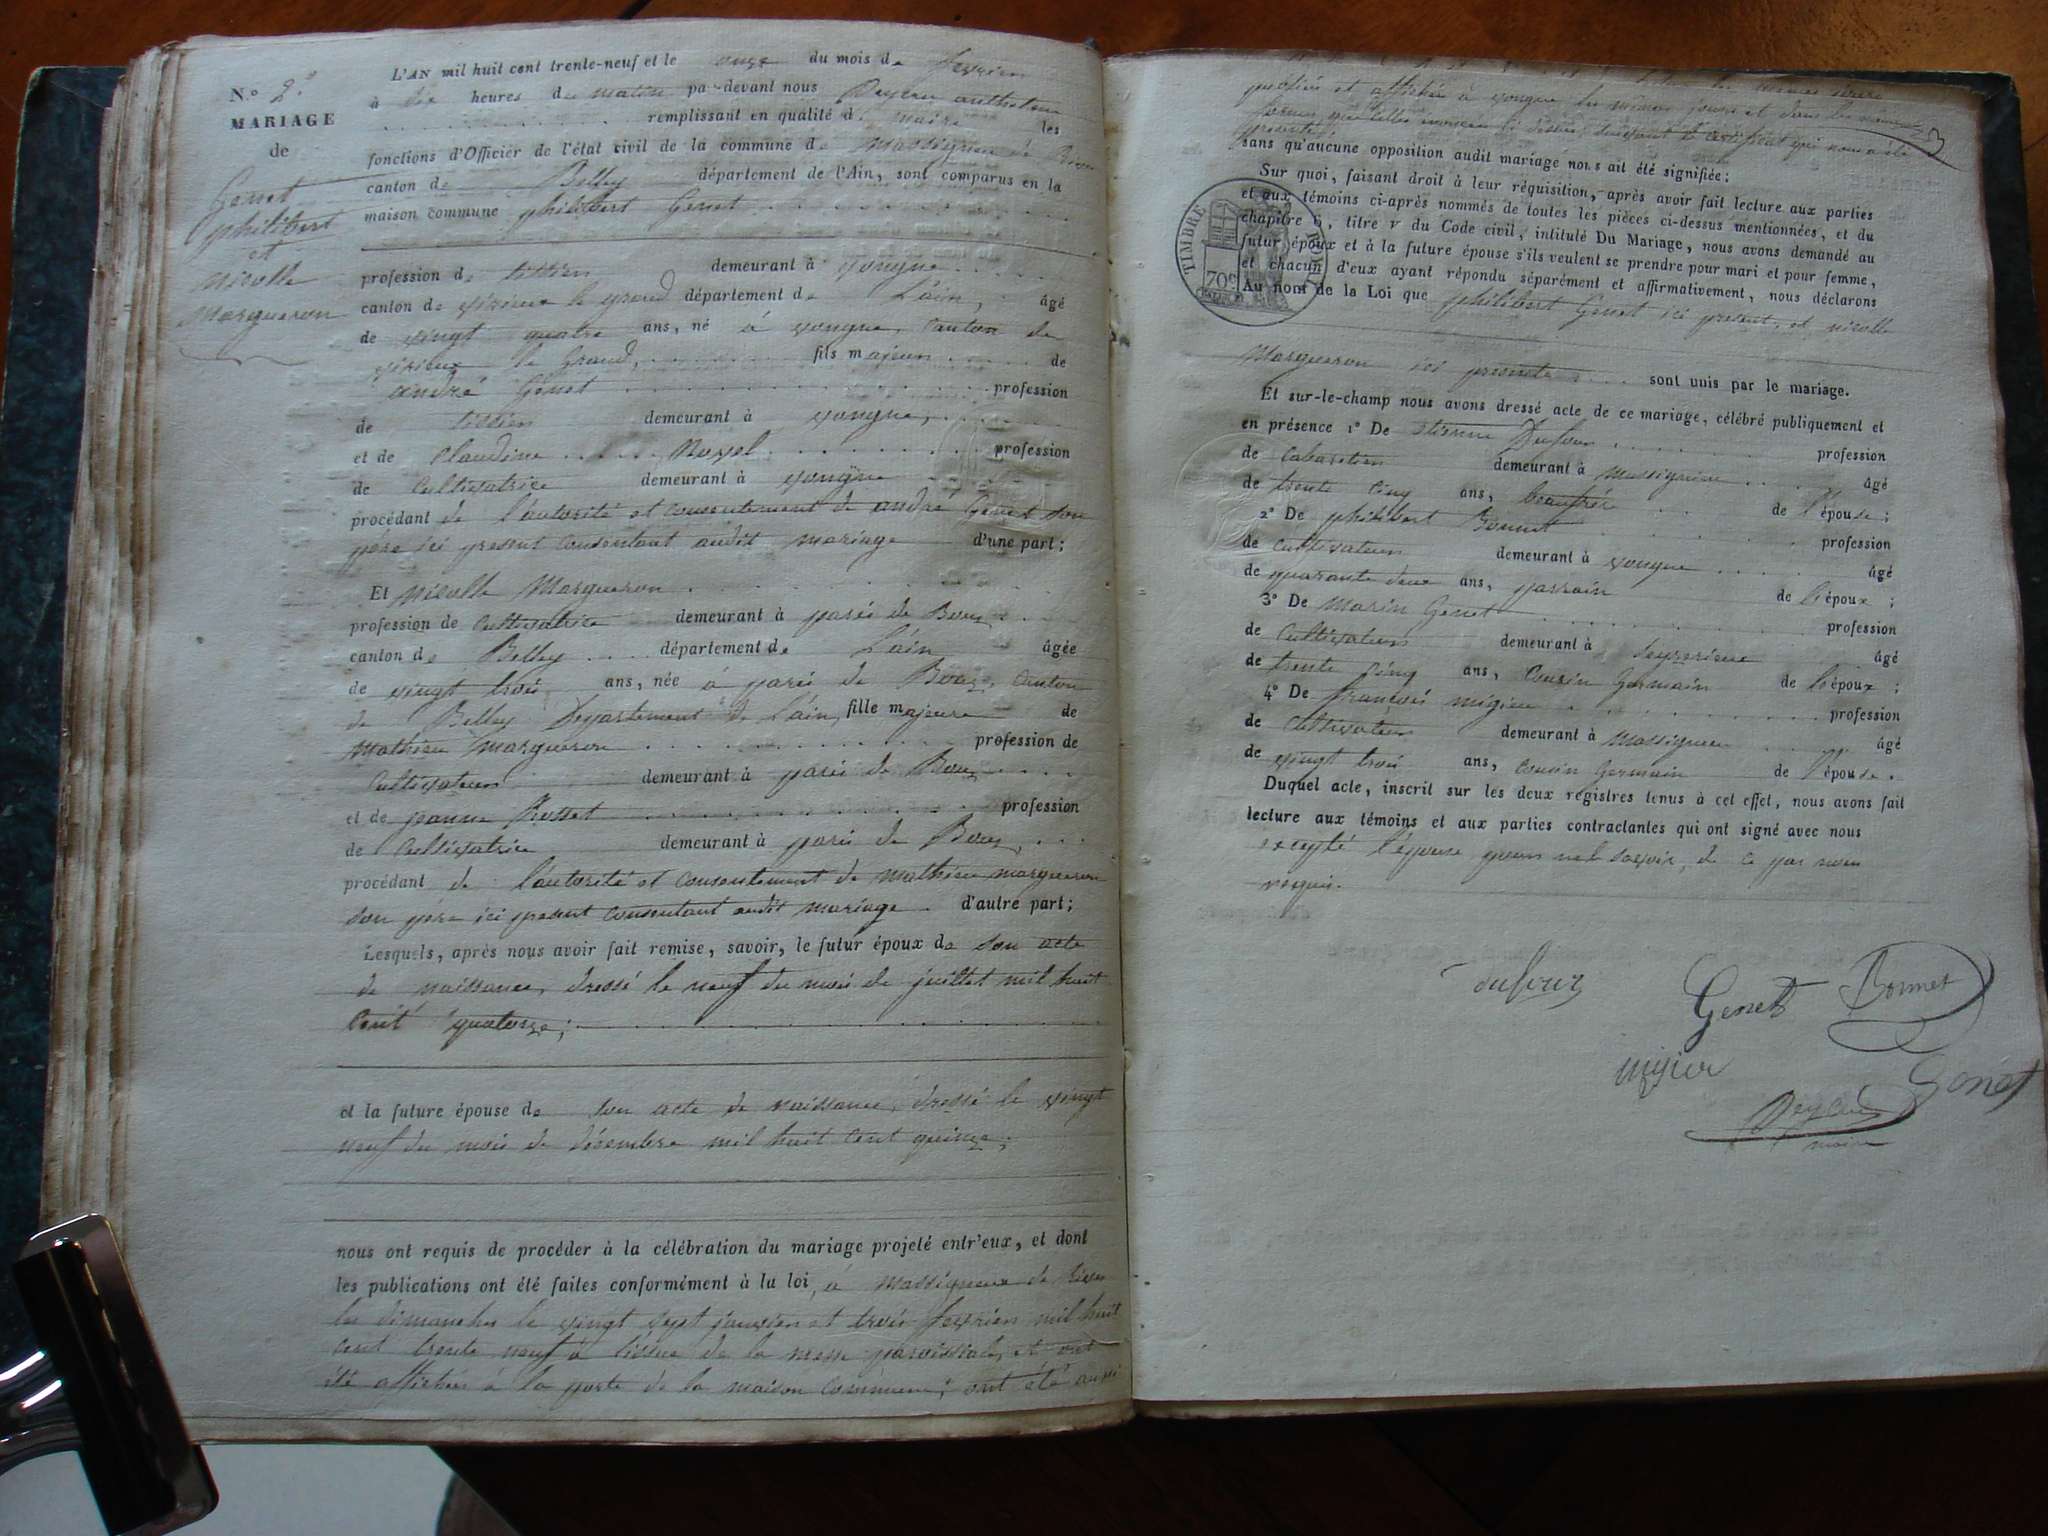 N.º 2.
MARIAGE
de
Genet
philibert
et
nicolle
Margueron
L'AN mil huit cent trente-neuf et le onze du mois de fevrier
à dix heures du matin par-devant nous Deyeau anthelme
remplissant en qualité de maire les
fonctions d'Officier de l'état civil de la commune de Massignieu de Rives
canton de Belley département de l'Ain, sont comparus en la
maison commune philibert Genet
profession de tissier demeurant à vongne
canton de virieux le grand département de L'ain, âgé
de vingt quatre ans, né à vongne, canton de
virieux le Grand, fils majeur de
andré Génet profession
de tissier demeurant à vongne,
et de Claudine Royel profession
de Cultivatrice demeurant à vongne
procédant de l'autorité et consentement de andré Genet son
père ici present consentant audit mariage d'une part;
Et nicolle Margueron
profession de cultivatrice demeurant à parie de Bouz
canton de Belley département de L'ain âgée
de vingt trois ans, née à parie de Bouz, canton
de Belley Departement de L'ain, fille majeure de
mathieu margueron profession de
Cultivateur demeurant à parie de Bouz
et de jeanne Rosset profession
de Cultivatrice demeurant à parie de Bouz,
procédant de l'autorité et consentement de mathieu margueron
son père ici present consentant audit mariage d'autre part;
Lesquels, après nous avoir fait remise, savoir, le futur époux de son acte
de naissance, dressé le neuf du mois de juillet mil huit
Cent quatorze;
et la future épouse de son acte de naissance, dressé le vingt
neuf du mois de décembre mil huit Cent quinze;
nous ont requis de procéder à la célébration du mariage projeté entr'eux, et dont
les publications ont été faites conformément à la loi, à massignieu de Rives
les dimanches le vingt sept janvier et trois fevrier mil huit
cent trente neuf à l'issue de la messe paroissiale, et ont
été affichées à la porte de la maison commune; ont été aussi
publiées et affichée à vongne les mêmes jours et dans les mêmes
formes que celles énoncées ci dessus, suivant le certificat qui nous a été
présenté
sans qu'aucune opposition audit mariage nous ait été signifiée;
Sur quoi, faisant droit à leur réquisition, après avoir fait lecture aux parties
et aux témoins ci-après nommés de toutes les pièces ci-dessus mentionnées, et du
chapitre 6, titre v du Code civil, intitulé Du Mariage, nous avons demandé au
futur époux et à la future épouse s'ils veulent se prendre pour mari et pour femme,
et chacun d'eux ayant répondu séparément et affirmativement, nous déclarons
Au nom de la Loi que philibert Genet ici present, et nicolle
TIMBRE ROYAL
70c
Margueron ici presente sont unis par le mariage.
Et sur-le-champ nous avons dressé acte de ce mariage, célébré publiquement et
en présence 1º De etienne Dufour profession
de Cabaretier demeurant à massignieu âgé
de trente cinq ans, beaufrère de l'épouse;
2º De philibert Bonnet profession
de cultivateur demeurant à vongne âgé
de quarante deux ans, parrain de l'époux;
3º De marin Genet profession
de Cultivateur demeurant à seyzerieux âgé
de trente cinq ans, cousin Germain de l'époux;
4º De françois migieu profession
de Cultivateur demeurant à massignieu âgé
de vingt trois ans, cousin Germain de l'épouse.
Duquel acte, inscrit sur les deux registres tenus à cet effet, nous avons fait
lecture aux témoins et aux parties contractantes qui ont signé avec nous
excepté l'épouse pour ne le savoir, de ce par nous
requis.
dufour
Genet Bonnet
migieu
Genet
maire